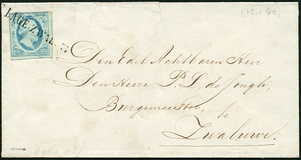 (12.1.60)
LAGE ZWAL
Den Edel Achtbaren Heer
Den Heere P. L. de Jongh,
Burgemeester, te
Zwaluwe.